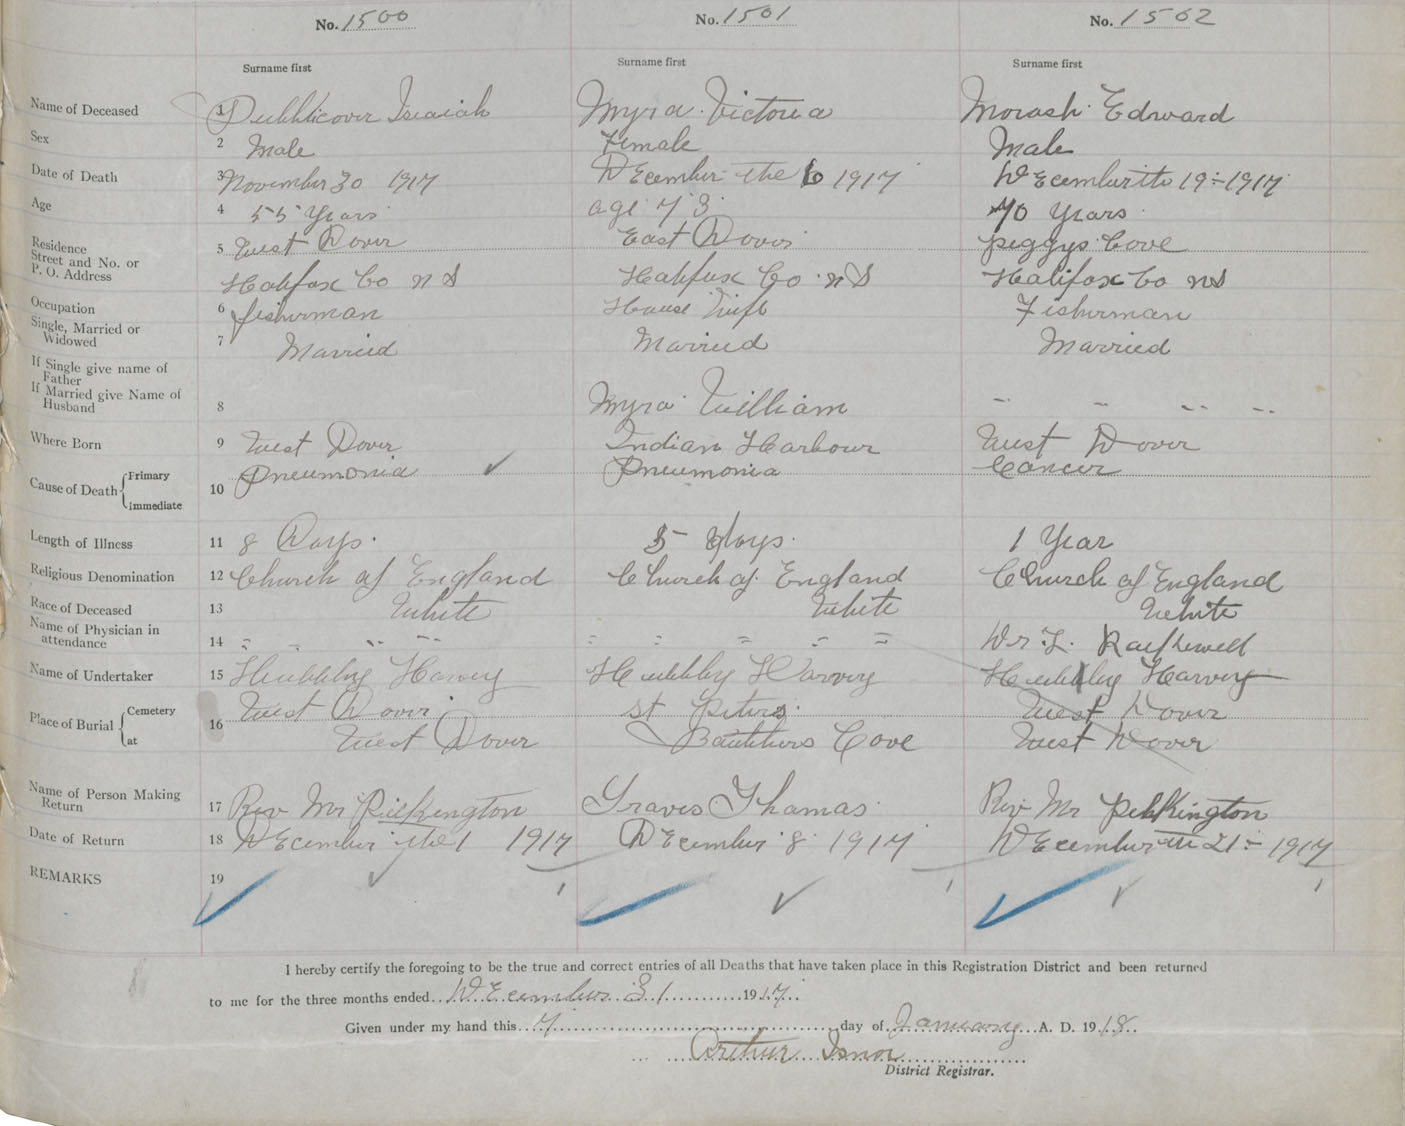 No. 1500 No. 1501 No. 1502
Surname first Surname first Surname first
Name of Deceased 1 Publicover Isaiah Myra Victoria Morash Edward
Sex 2 Male Female Male
Date of Death 3 November 30 1917 December the 6 1917 December th 19 - 1917
Age 4 55 Years age 73 70 Years
Residence
Street and No. or 5 West Dover East Dover peggys Cove
P. O. Address Halifax Co N S Halifax Co N S Halifax Co NS
Occupation 6 fisherman House Wife Fisherman
Single, Married or
Widowed 7 Married Married Married
If Single give name of
Father
If Married give Name of
Husband 8 Myra William
Where Born 9 West Dover Indian Harbour West Dover
Cause of Death Primary Pneumonia Pneumonia Cancer
Immediate 10
Length of Illness 11 8 Days. 5 days. 1 Year
Religious Denomination 12 Church of England Church of England Church of England
Race of Deceased 13 White White White
Name of Physician in
attendance 14 " " " " " " " " " Dr
Name of Undertaker 15 Hubbly Harvey Hubbly Harvey Hubbly Harvey
Place of Burial Cemetery West Dover St Peters. West Dover
at 16 West Dover Cove West Dover
Name of Person Making
Return 17 Rev Mr Pilkington Graves Thamas Rev Mr Pilkington
Date of Return 18 December the 1 1917 December 8 1917 December th 21 - 1917
REMARKS 19
I hereby certify the foregoing to be the true and correct entries of all Deaths that have taken place in this Registration District and been returned
to me for the three months ended December 31 1917
Given under my hand this 7 day of January A. D. 1918
Arthur Isnor
District Registrar.